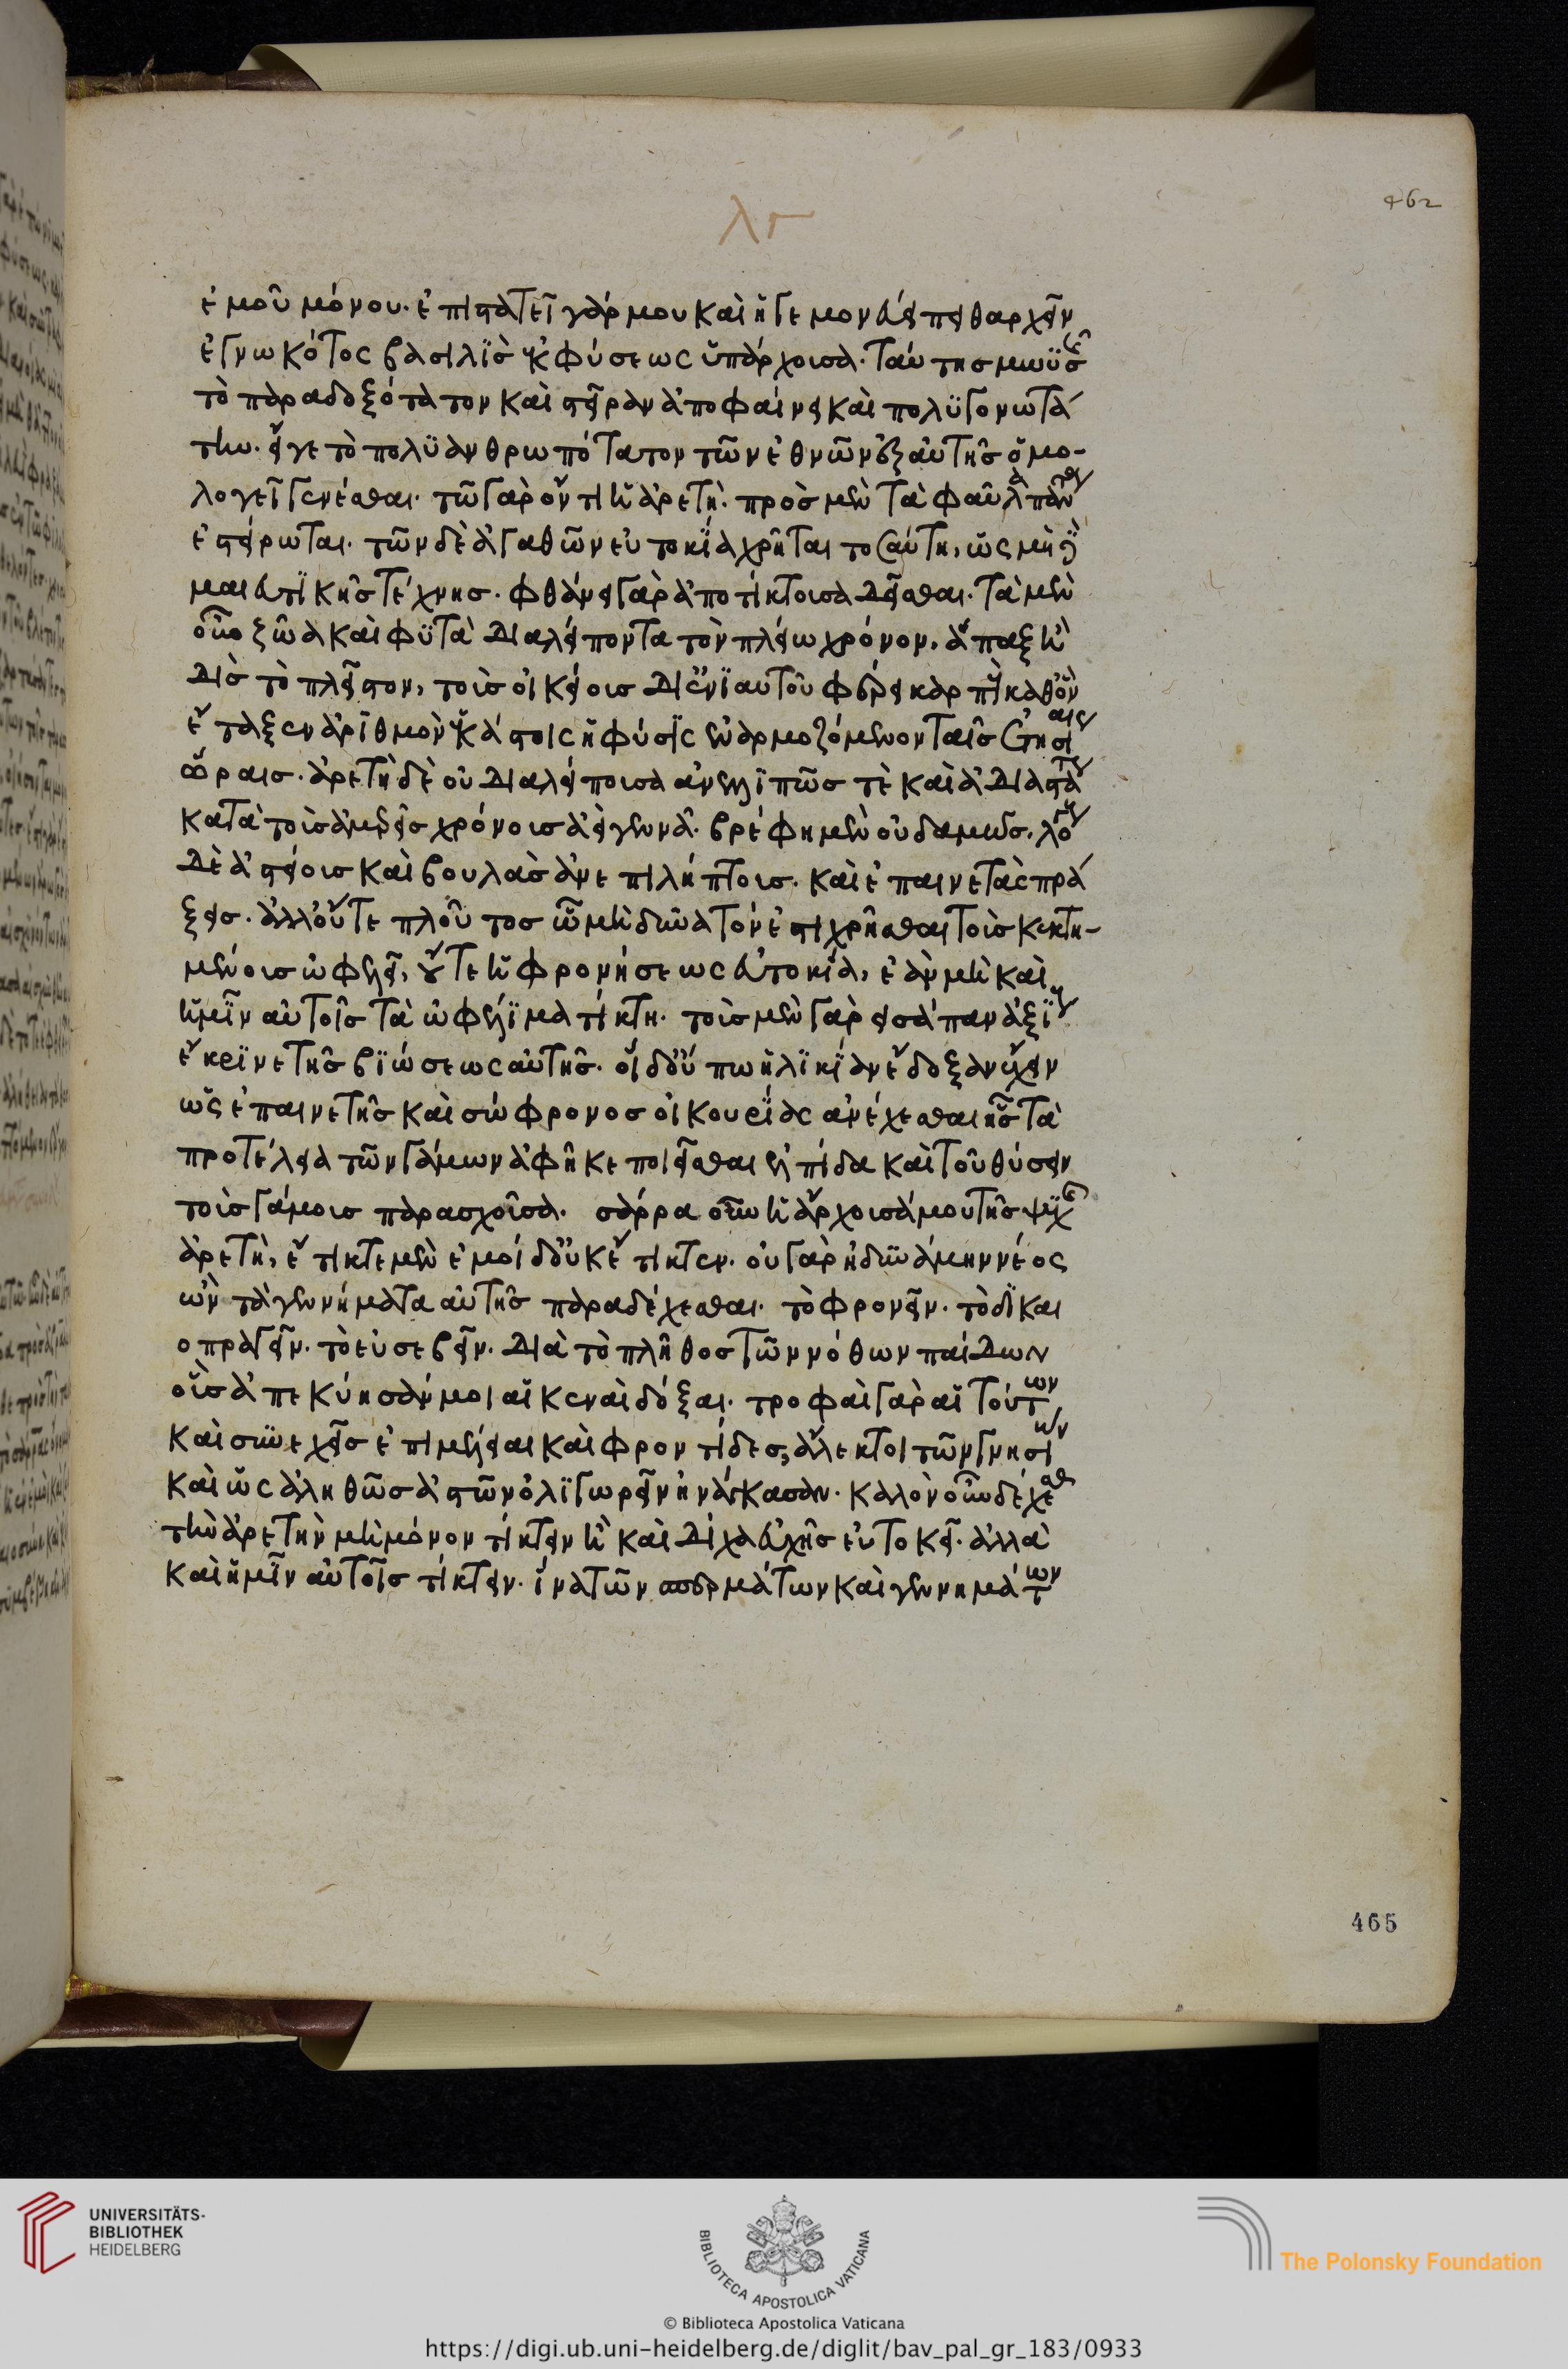 λς
462
ἐμοῦ μόνου· ἐπιστατεῖ γάρ μου καὶ ἡγεμονεύει πειθαρχεῖν
ἐγνωκότος βασιλῒς ἐκ φύσεως ὑπάρχουσα· ταύτης μωϋσῆς
τὸ παραδοξότατον καὶ στεῖραν ἀποφαίνει καὶ πολϋγονωτά
την· εἴγε τὸ πολϋανθρωπότατον τῶν ἐθνῶν ἐξ αὐτῆς ὁμο-
λογεῖ γενέσθαι· τῶ γὰρ ὄντι ἡ ἀρετὴ· πρὸς μὲν τὰ φαῦλα πάντα
ἐστείρωται· τῶν δὲ ἀγαθῶν εὐτοκΐα χρῆται τοιαύτη, ὡς μὴ δὲ
μαιευτϊκῆς τέχνης· φθάνει γὰρ ἀποτίκτουσα δεῖσθαι· τὰ μὲν
οὖν ζῶα καὶ φϋτὰ διαλείποντα τὸν πλείω χρόνον, ἅπαξ ἢ
δὶς τὸ πλεῖστον, τοὺς οἰκείους δι' ἐνϊαυτοῦ φέρει καρποὺς καθ' ὃν
ἔταξεν ἀρϊθμὸν ἑκάστοις ἡ φύσϊς ἐναρμοζόμενον ταῖς ἐτησίαις
ὥραις· ἀρετὴ δὲ οὐ διαλείπουσα ἀνελλϊπῶς τὲ καὶ ἀδιαστάτως
κατὰ τοὺς ἀμερεῖς χρόνους ἀεὶ γεννᾶ· βρέφη μὲν οὐδαμῶς· λόγους
δὲ ἀστείους καὶ βουλὰς ἀνεπιλήπτους· καὶ ἐπαινετὰς πρά
ξεις· ἀλλ' οὔτε πλοῦτος ὧ μὴ δυνατόν ἐστι χρῆσθαι τοὺς κεκτη-
μένους ὠφελεῖ, οὔτε ἡ φρονήσεως εὐτοκΐα, ἐὰν μὴ καὶ
ἡμῖν αὐτοῖς τὰ ὠφέλϊμα τίκτη· τοὺς μὲν γὰρ εἰσάπαν ἀξΐους
ἔκρϊνε τῆς βϊώσεως αὐτῆς· οἱ δ' οὔπω ἡλϊκΐαν ἔδοξαν ἔχειν
ὡς ἐπαινετῆς καὶ σώφρονος οἰκουρΐας ἀνέχεσθαι ἧς τὰ
προτέλεια τῶν γάμων ἀφῆκε ποιεῖσθαι ἐλπίδα καὶ τοῦ θύσειν
τοὺς γάμους παρασχοῦσα· σάρρα οὖν ἡ ἄρχουσά μου τῆς ψυχῆς
ἀρετὴ, ἔτικτε μὲν ἐμοὶ δ' οὐκ ἔτικτεν· οὐ γὰρ ἠδυνάμην νέος
ὢν τὰ γεννήματα αὐτῆς παραδέχεσθαι· τὸ φρονεῖν· τὸ δϊκαι
οπραγεῖν· τὸ εὐσεβεῖν· διὰ τὸ πλῆθος τῶν νόθων παίδων
οὓς ἀπεκύησάν μοι αἱ κεναὶ δόξαι· τροφαὶ γὰρ αἱ τούτων
καὶ συνεχεῖς ἐπιμέλειαι καὶ φροντίδες, ἄλεκτοι τῶν γνησίων
καὶ ὡς ἀληθῶς ἀστῶν ὀλϊγωρεῖν ἠνάγκασαν· καλὸν οὖν εὔχεσθαι
τὴν ἀρετὴν μὴ μόνον τίκτειν ἣ καὶ δίχα εὐχῆς εὐτοκεῖ· ἀλλὰ
καὶ ἡμῖν αὐτοῖς τίκτειν· ἵνα τῶν σπερμάτων καὶ γεννημάτων
465
UNIVERSITÄTS-
BIBLIOTHEK
HEIDELBERG
BIBLIOTECA APOSTOLICA VATICANA
The Polonsky Foundation
© Biblioteca Apostolica Vaticana
https://digi.ub.uni-heidelberg.de/diglit/bav_pal_gr_183/0933